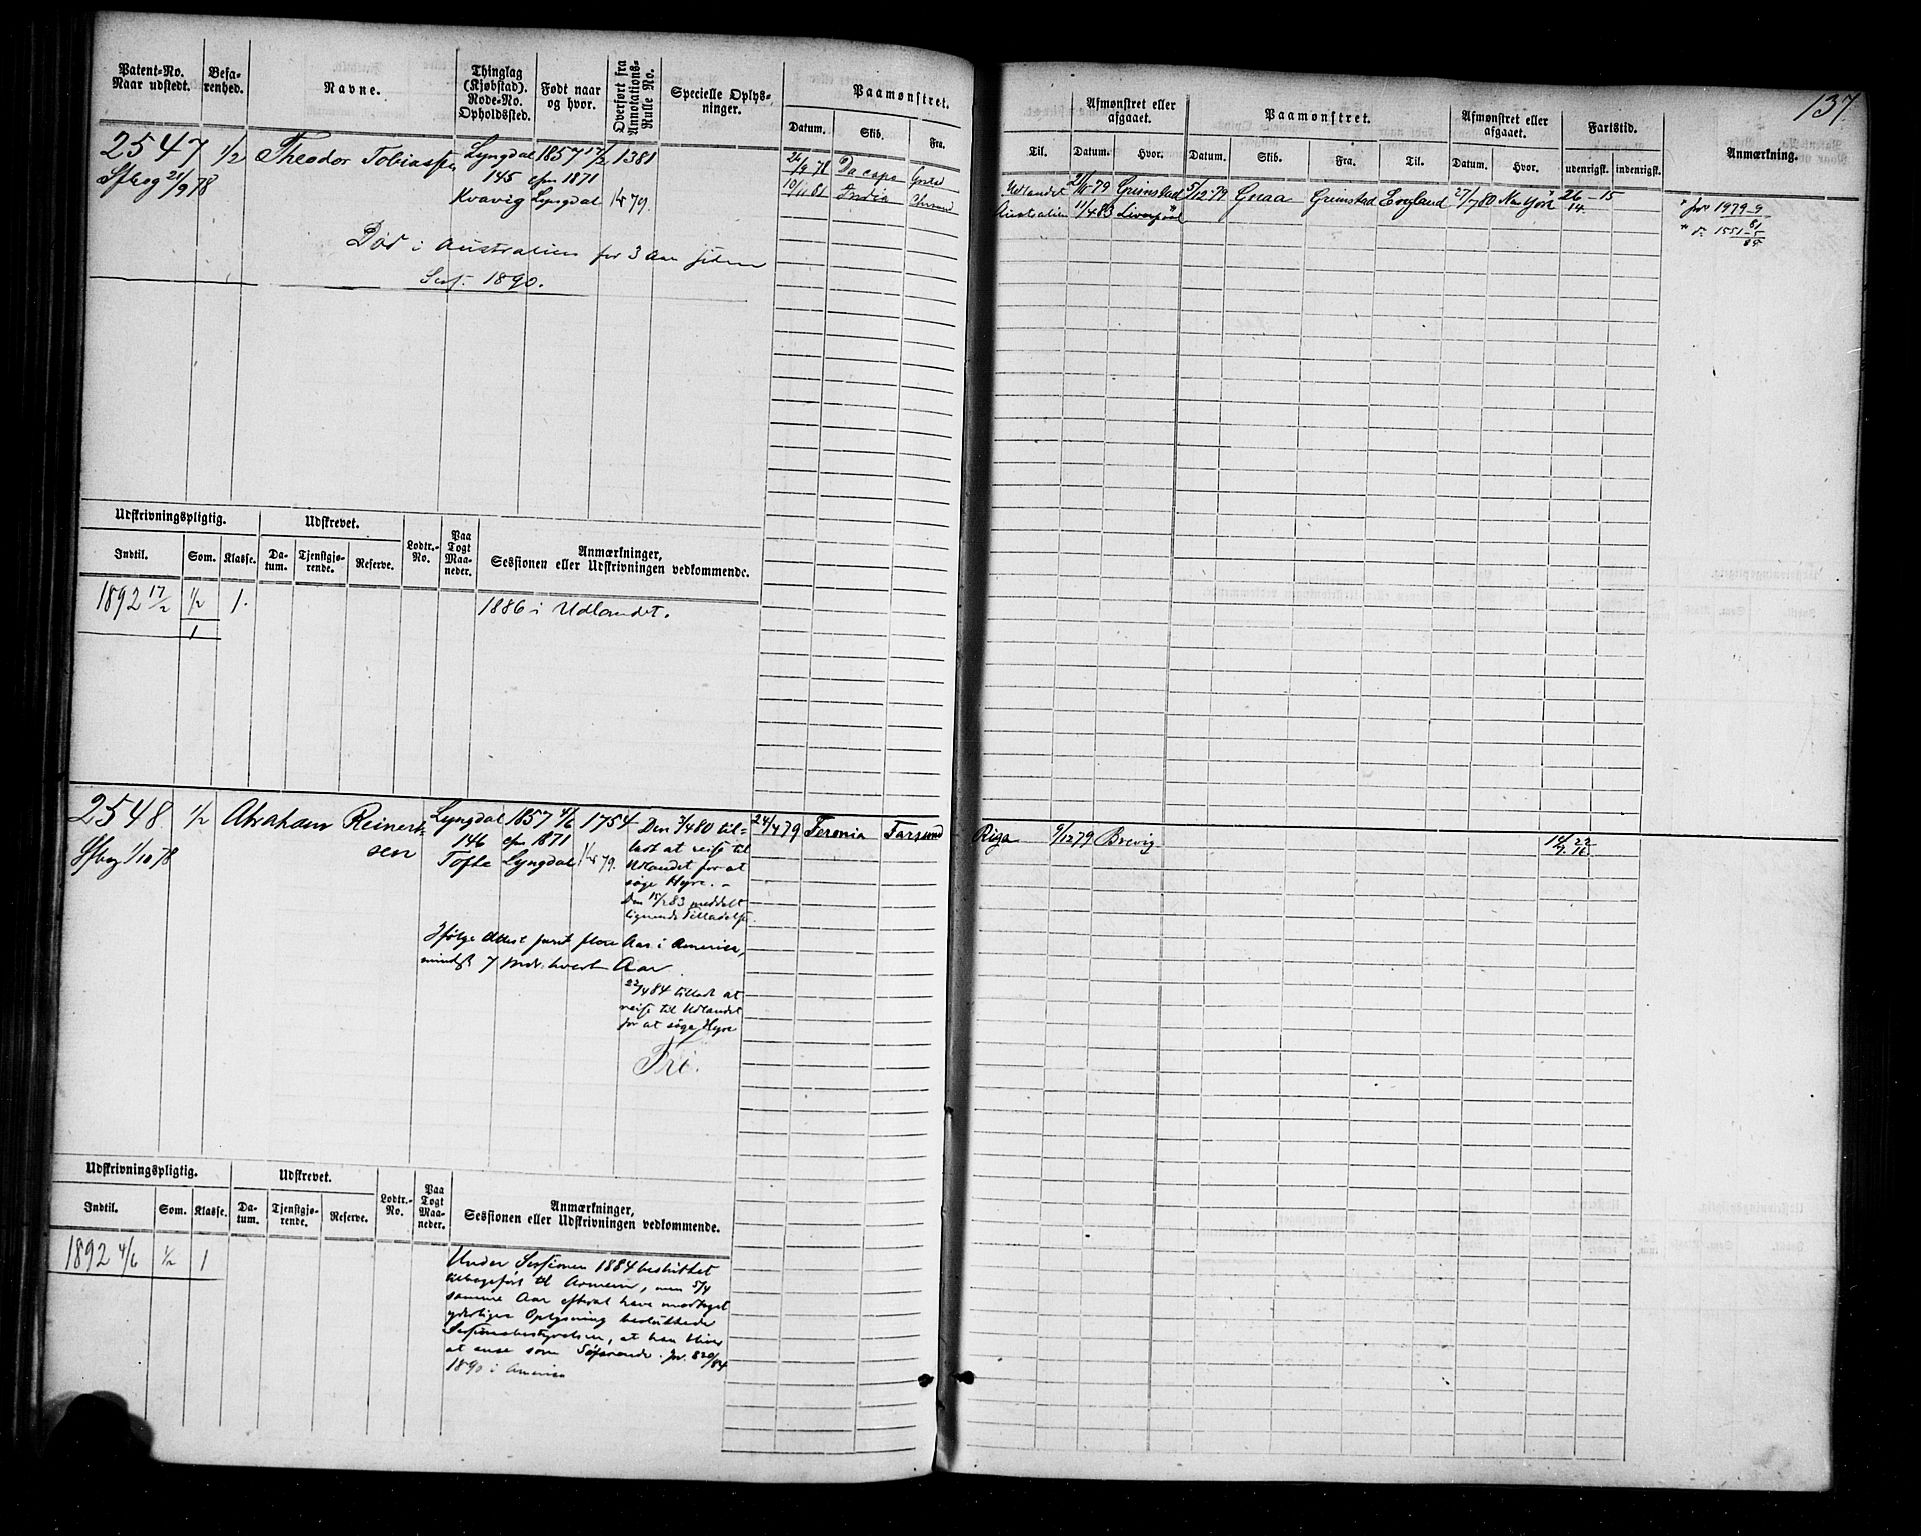 137
Patent-No. Naar udstedt.
Befarenhed.
Navne.
Thinglag (Kjøbstad). Rode-No. Opholdssted.
Født naar og hvor.
Overført fra Annotations-Rulle No.
Specielle Oplysninger.
Paamønstret.
Datum. Skib. Fra. Til.
Afmønstret eller afgaaet.
Datum. Hvor.
Paamønstret.
Datum. Skib. Fra. Til.
Afmønstret eller afgaaet.
Datum. Hvor.
Fartstid.
udenrigsk. indenrigsk.
Anmærkning.
2547 1/2 Theodor Tobiassen Lyngdal 1857 17/2 1381
21/9 78 145 1871
Kvavig Lyngdal 79.
/9 78 Da capo Udlandet 79 Grimstad 5/12-79 Gnaa Grimstad England 27/7 80 New York 26 - 15
10/11 81 India Australien 11/4 83 Liverpool 14
1979-9
1551-5
Død i Australien for 3 Aar siden
Sess. 1890.
Udskrivningspligtig. Udskrevet. Lodtr.-No. Paa Togt Maaneder. Anmærkninger, Sessionen eller Udskrivningen vedkommende.
Indtil. Som. Klasse. Datum. Tjenstgjørende. Reserve.
1892 17/2 1/2 1. 1886 i Udlandet.
1
2548 1/2 Abraham Reinertsen Lyngdal 1857 4/6 1754
1/10 78 146 1871
Tofte Lyngdal 79.
24/4 79 Feronia Farsund Riga 9/12 79 Brevig 14 22
9. 16
Den /4 80 tilladt at reise til
Udlandet for at
søge Hyre. -
Den 15/2 83 meddelt
lignende Tilladelse.
Ifølge Attest faret flere Aar i America,
mindst 7 Mdr. hvert Aar.
22/4 84 tilladt at
reise til Udlandet
for at søge Hyre
Fri.
Udskrivningspligtig. Udskrevet. Lodtr.-No. Paa Togt Maaneder. Anmærkninger, Sessionen eller Udskrivningen vedkommende.
Indtil. Som. Klasse. Datum. Tjenstgjørende. Reserve.
1892 4/6 1/2 1
Under Sessionen 1884 besluttet
tilbageført til Armeen, men 5/4
samme Aar efterat have modtaget
yderligere Oplysning besluttede
Sessionsbestyrelsen, at han bliver
at anse som Søfarende. Jr. 820/84
1890 i America